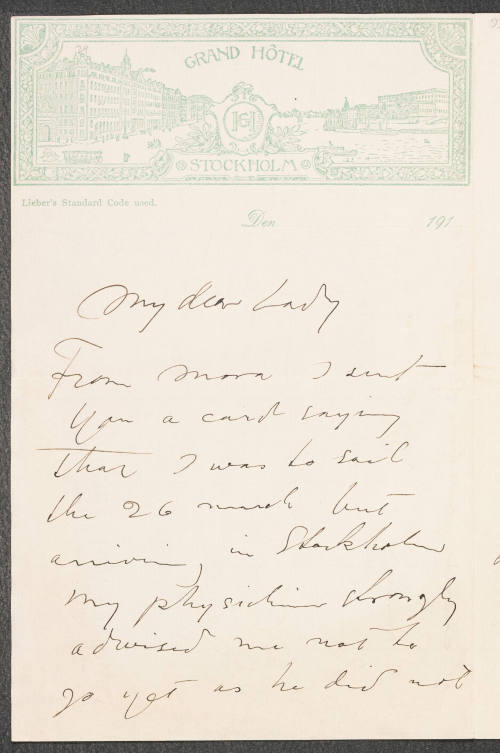 GRAND HÔTEL
GH
STOCKHOLM
Lieber's Standard Code used.
Den 191
My dear Lady
From Mora I sent
you a card saying
that I was to sail
the 26 march but
arriving in Stockholm
my physician strongly
adwised me not to
go yet as he did not